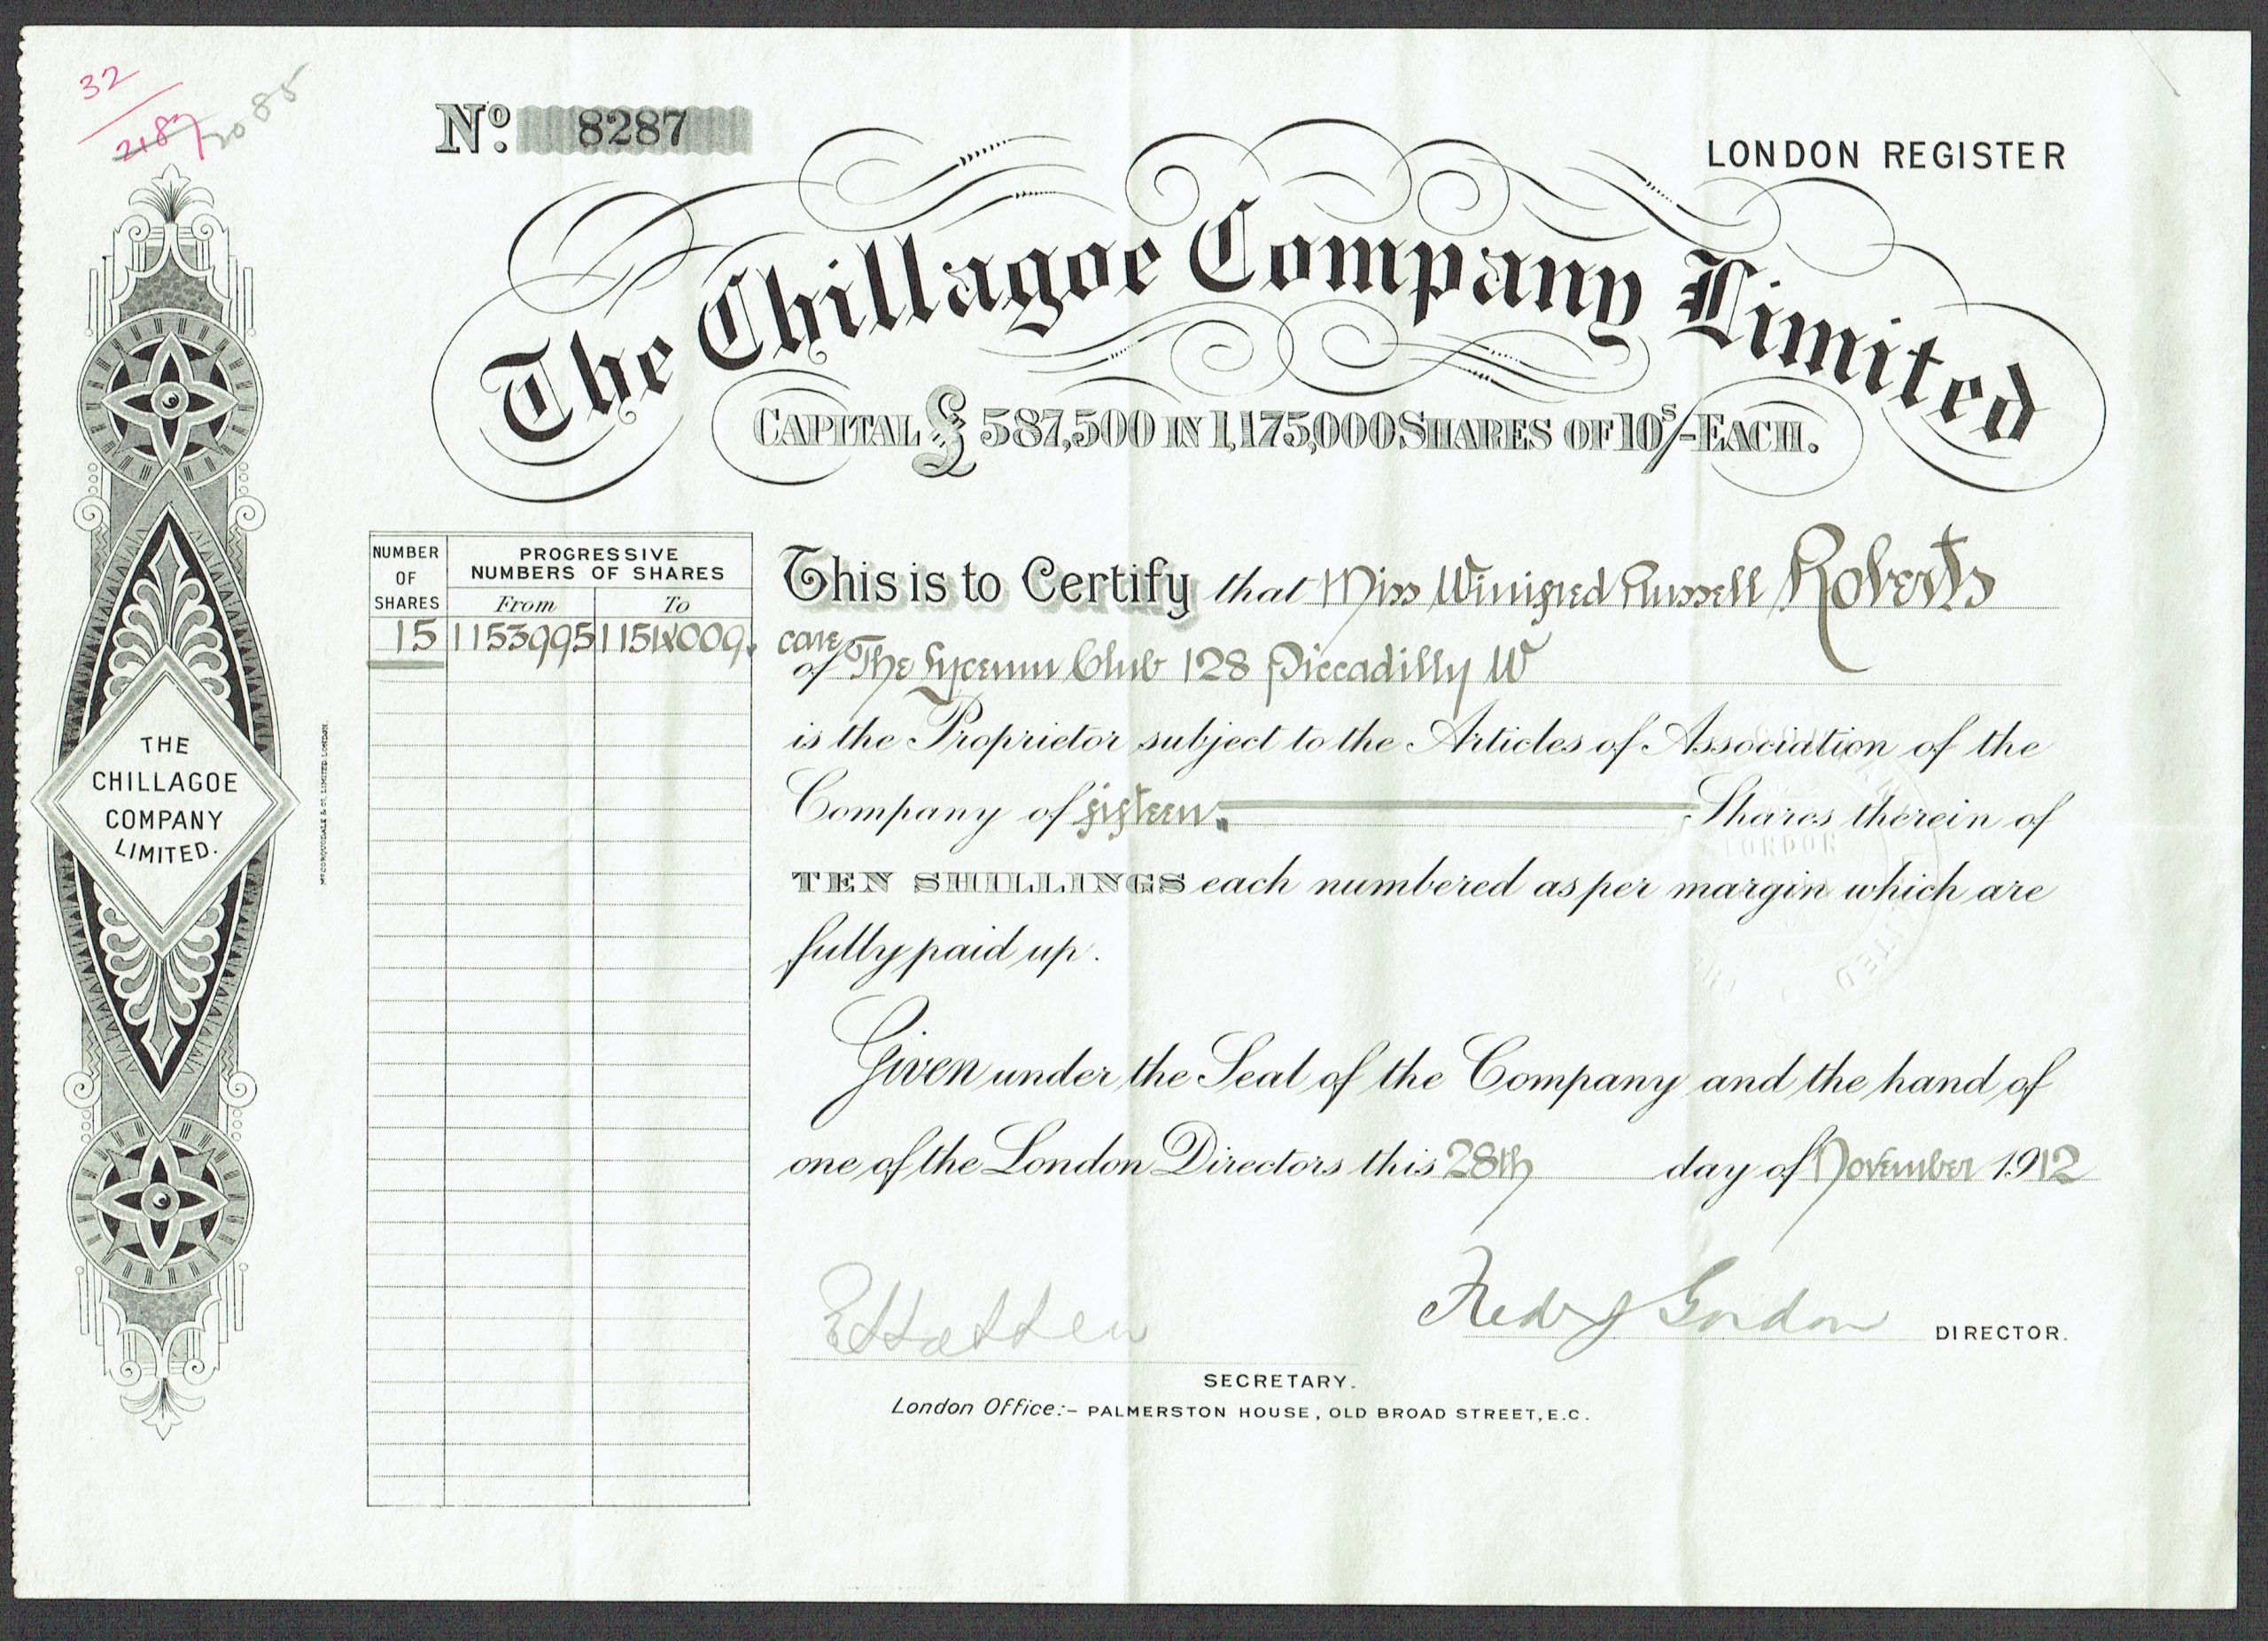 32
2187
2085
No. 8287
LONDON REGISTER
The Chillagoe Company Limited
CAPITAL £587,500 IN 1,175,000 SHARES OF 10s/- EACH.
NUMBER OF SHARES
PROGRESSIVE NUMBERS OF SHARES
From To
15 1153995 1154009.
This is to Certify that Miss Winifred Russell Roberts
care of The Lyceum Club 128 Piccadilly W
is the Proprietor subject to the Articles of Association of the
Company of fifteen. Shares therein of
TEN SHILLINGS each numbered as per margin which are
fully paid up.
Given under the Seal of the Company and the hand of
one of the London Directors this 28th day of November 1912
Fredk J Gordon DIRECTOR.
SECRETARY.
London Office:- PALMERSTON HOUSE, OLD BROAD STREET, E.C.
THE
CHILLAGOE
COMPANY
LIMITED.
McCORQUODALE & Co. LIMITED. LONDON.
LONDON